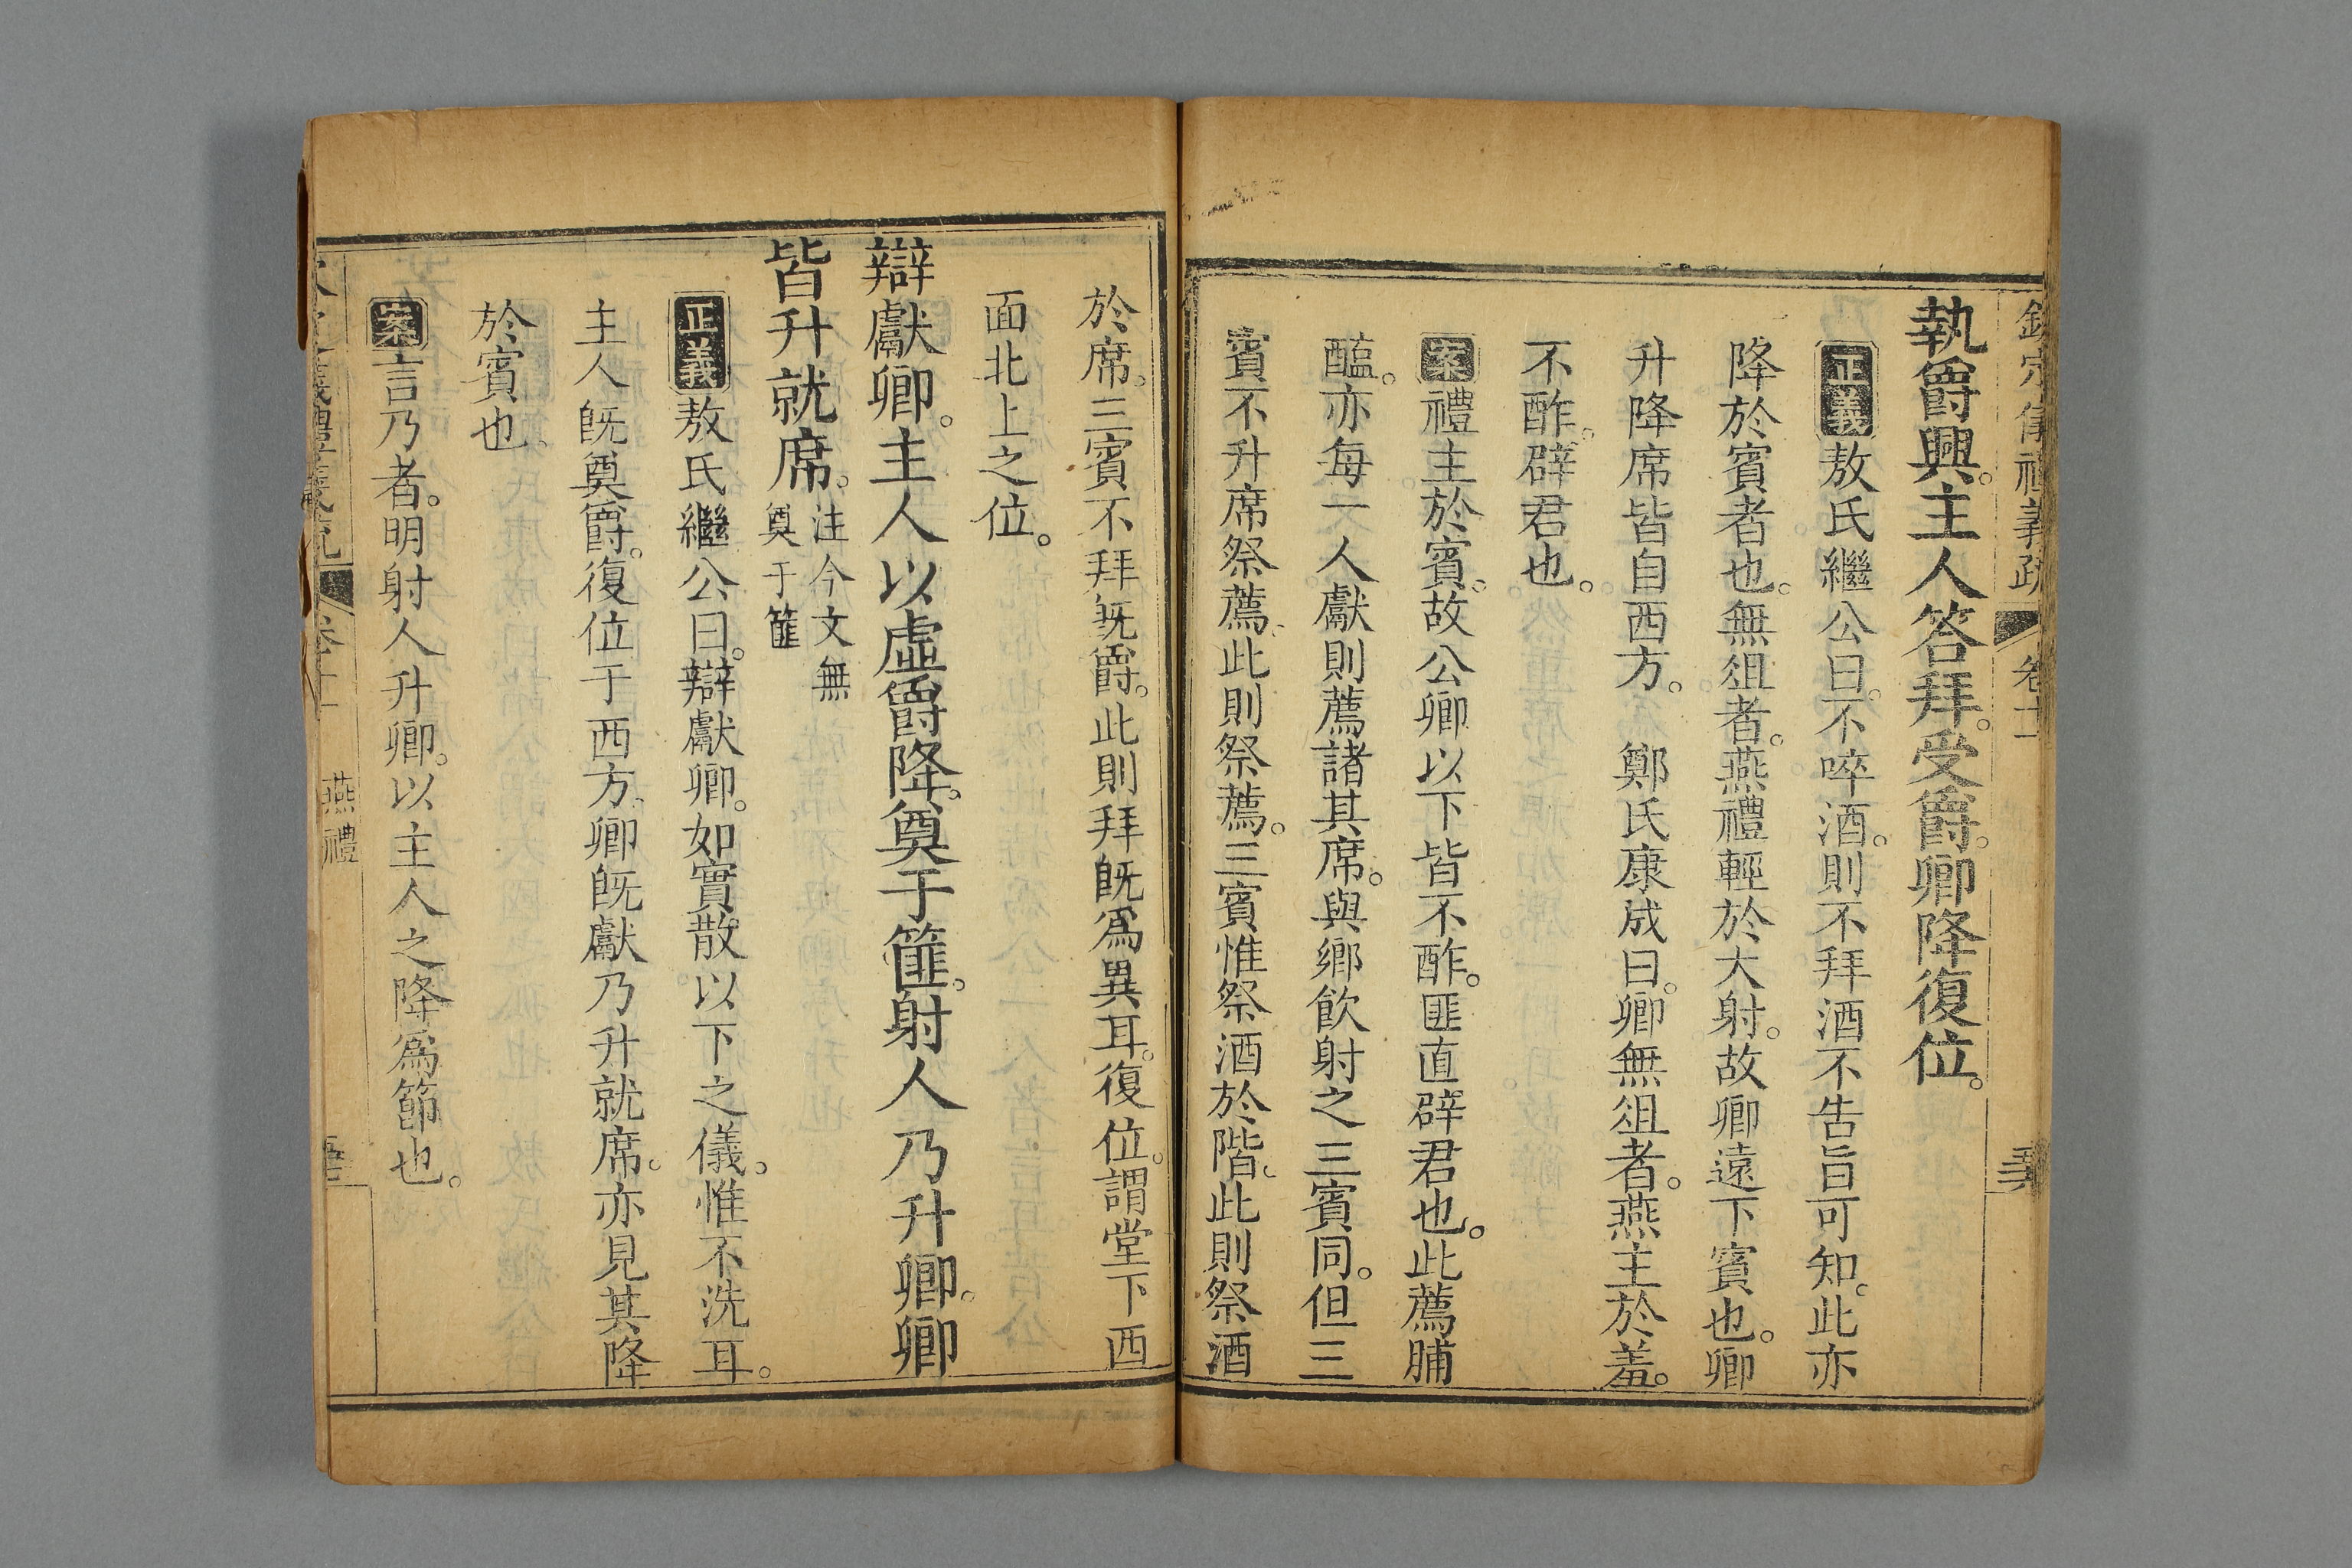 欽定儀禮義疏 卷十一
執爵興。主人答拜。受爵。卿降復位。
正義敖氏繼公曰。不啐酒。則不拜酒不告旨可知。此亦
降於賓者也。無俎者。燕禮輕於大射。故卿遠下賓也。卿
升降席皆自西方。 鄭氏康成曰。卿無俎者。燕主於羞。
不酢。辟君也。
案禮主於賓。故公卿以下皆不酢。匪直辟君也。此薦脯
醢。亦每一人獻則薦諸其席。與鄉飲射之三賓同。但三
賓不升席祭薦。此則祭薦。三賓惟祭酒於階。此則祭酒
於席。三賓不拜旣爵。此則拜旣爲異耳。復位。謂堂下西
面北上之位。
辯獻卿。主人以虛爵降。奠于篚。射人乃升卿。卿
皆升就席。注今文無
奠于篚
正義敖氏繼公曰。辯獻卿。如實散以下之儀。惟不洗耳。
主人旣奠爵。復位于西方、卿旣獻乃升就席。亦見其降
於賓也。
案言乃者。明射人升卿。以主人之降爲節也。
儀禮義疏 卷十一 燕禮